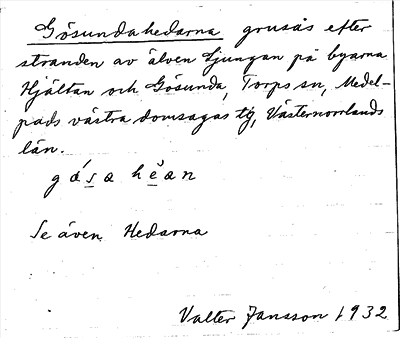 Gösundahedarna grusås efter
stranden av älven Ljungan på byarna
Hjältan och Gösunda, Torps sn, Medel-
pads västra domsagas tg, Västernorrlands
län.
hean
Se även Hedarna
Valter Jansson 1932